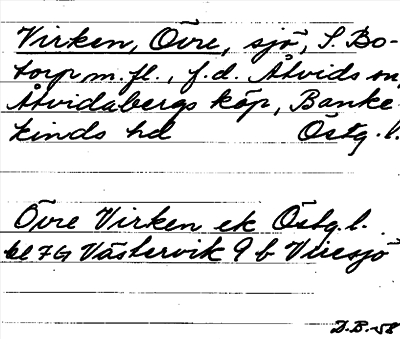 Virken, Övre, sjö, S. Bo-
torp m. fl., f.d. Åtvids sn,
Åtvidabergs köp, Banke-
kinds hd Östg. l.
Övre Virken ek Östg. l.
bl 7G Västervik 9 b Viresjö
D.B.-58